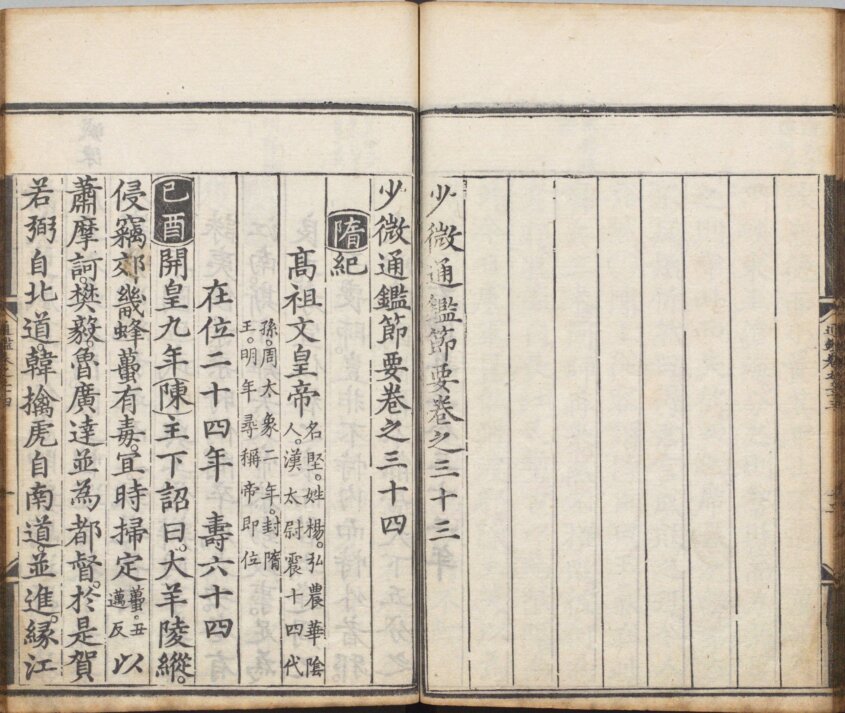 少微通鑑節要卷之三十三
少微通鑑節要卷之三十四
隋紀
高祖文皇帝名堅。姓楊。弘農華陰
人。漢太尉震十四代
孫。周太象二年。封隋
王。明年尋稱帝即位
在位二十四年 壽六十四
己酉開皇九年陳主下詔曰。犬羊陵縱。
侵竊郊畿蜂蠆有毒。宜時掃定蠆。丑
邁反以
蕭摩訶。樊毅。魯廣達並為都督。於是賀
若弼自北道。韓擒虎自南道。並進。緣江